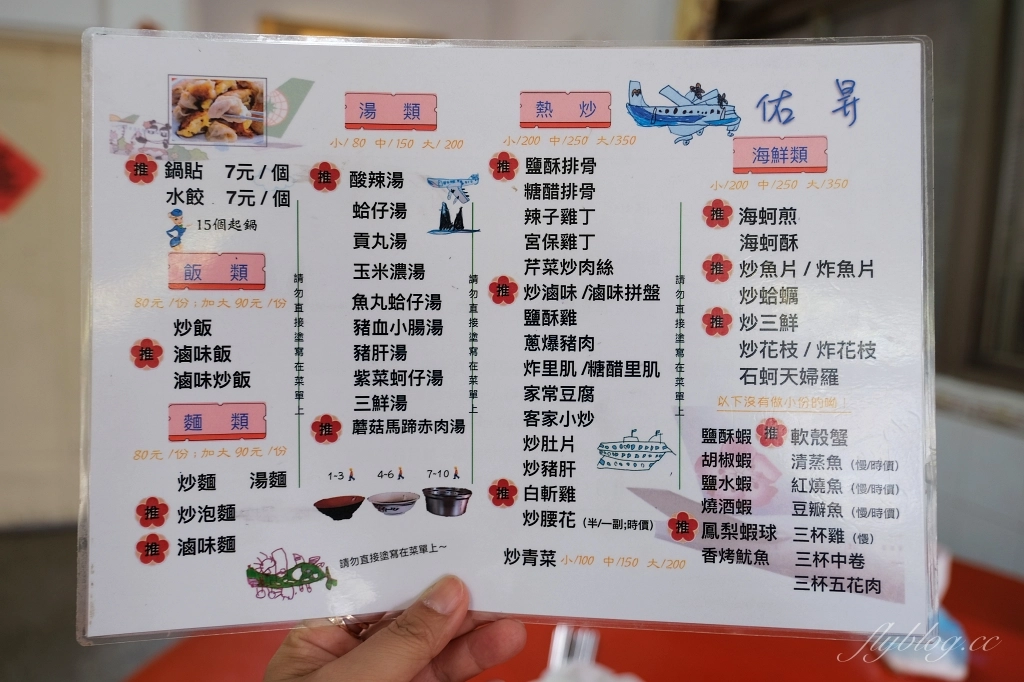 推 鍋貼 7元/個
水餃 7元/個
15個起鍋
飯 類
80元/份;加大90元/份
炒飯
推 滷味飯
滷味炒飯
麵 類
80元/份;加大90元/份
炒麵 湯麵
推 炒泡麵
推 滷味麵
湯 類
小/80 中/150 大/200
推 酸辣湯
蛤仔湯
貢丸湯
玉米濃湯
魚丸蛤仔湯
豬血小腸湯
豬肝湯
紫菜蚵仔湯
三鮮湯
推 蘑菇馬蹄赤肉湯
1-3 4-6 7-10
請勿直接塗寫在菜單上~
請勿直接塗寫在菜單上
請勿直接塗寫在菜單上
請勿直接塗寫在菜單上
熱 炒
小/200 中/250 大/350
推 鹽酥排骨
糖醋排骨
辣子雞丁
宮保雞丁
芹菜炒肉絲
推 炒滷味/滷味拼盤
鹽酥雞
蔥爆豬肉
炸里肌/糖醋里肌
家常豆腐
客家小炒
炒肚片
炒豬肝
推 白斬雞
炒腰花(半/一副;時價)
炒青菜 小/100 中/150 大/200
佑昇
海鮮類
小/200 中/250 大/350
推 海蚵煎
海蚵酥
推 炒魚片/炸魚片
炒蛤蠣
推 炒三鮮
炒花枝/炸花枝
石蚵天婦羅
以下沒有做小份的呦!
鹽酥蝦 推 軟殼蟹
胡椒蝦 清蒸魚(慢/時價)
鹽水蝦 紅燒魚(慢/時價)
燒酒蝦 豆瓣魚(慢/時價)
推 鳳梨蝦球 三杯雞(慢)
香烤魷魚 三杯中卷
三杯五花肉
flyblog.cc